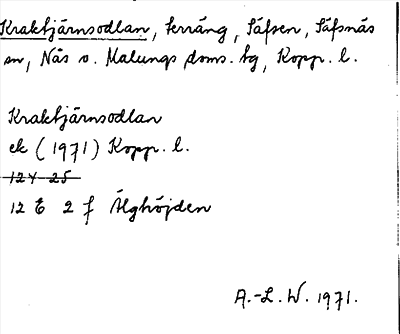 Kraktjärnsodlan, terräng, Säfsen, Säfsnäs
sn, Näs o. Malungs doms. tg, Kopp. l.
Kraktjärnsodlan
ek (1971) Kopp. l.
12Y 25
12 E 2 f Älghöjden
A.-L. W. 1971.